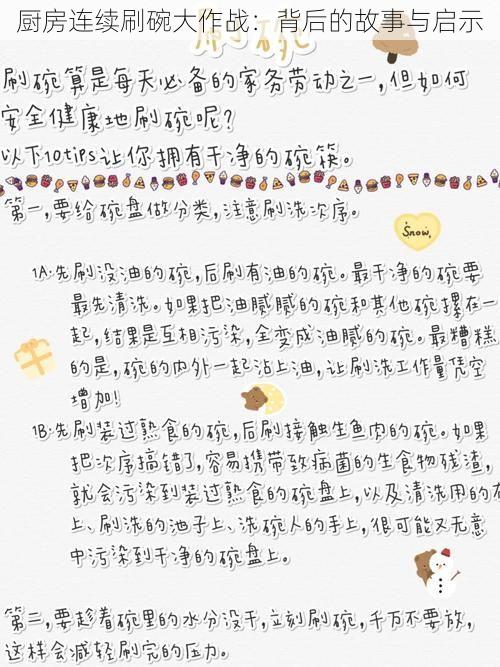 厨房连续刷碗大作战：背后的故事与启示
刷碗
刷碗算是每天必备的家务劳动之一,但如何
安全健康地刷碗呢?
以下10tips让你拥有干净的碗筷。
第一,要给碗盘做分类,注意刷洗次序。
Snow
1A:先刷没油的碗,后刷有油的碗。最干净的碗要
最先清洗。如果把油腻腻的碗和其他碗摞在一
起,结果是互相污染,全变成油腻的碗。最糟糕
的是,碗的内外一起沾上油,让刷洗工作量凭空
增加!
1B:先刷装过熟食的碗,后刷接触生鱼肉的碗。如果
把次序搞错了,容易携带致病菌的生食物残渣,
就会污染到装过熟食的碗盘上,以及清洗用的布
上、刷洗的池子上、洗碗人的手上,很可能又无意
中污染到干净的碗盘上。
第二,要趁着碗里的水分没干,立刻刷碗,千万不要放,
这样会减轻刷完的压力。